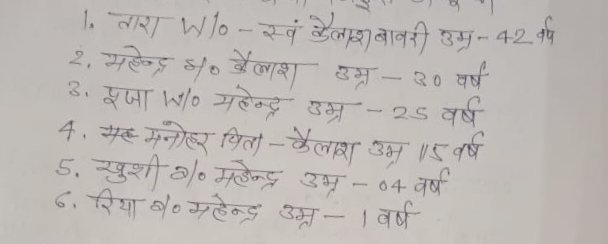 1. तारा W/o - स्वं कैलाश बावरी उम्र - 42 वर्ष
2. महेन्द्र s/o कैलाश उम्र - 30 वर्ष
3. पूजा W/o महेन्द्र उम्र - 25 वर्ष
4. मनोहर पिता - कैलाश उम्र 15 वर्ष
5. खुशी d/o महेन्द्र उम्र - 04 वर्ष
6. रिया d/o महेन्द्र उम्र - 1 वर्ष